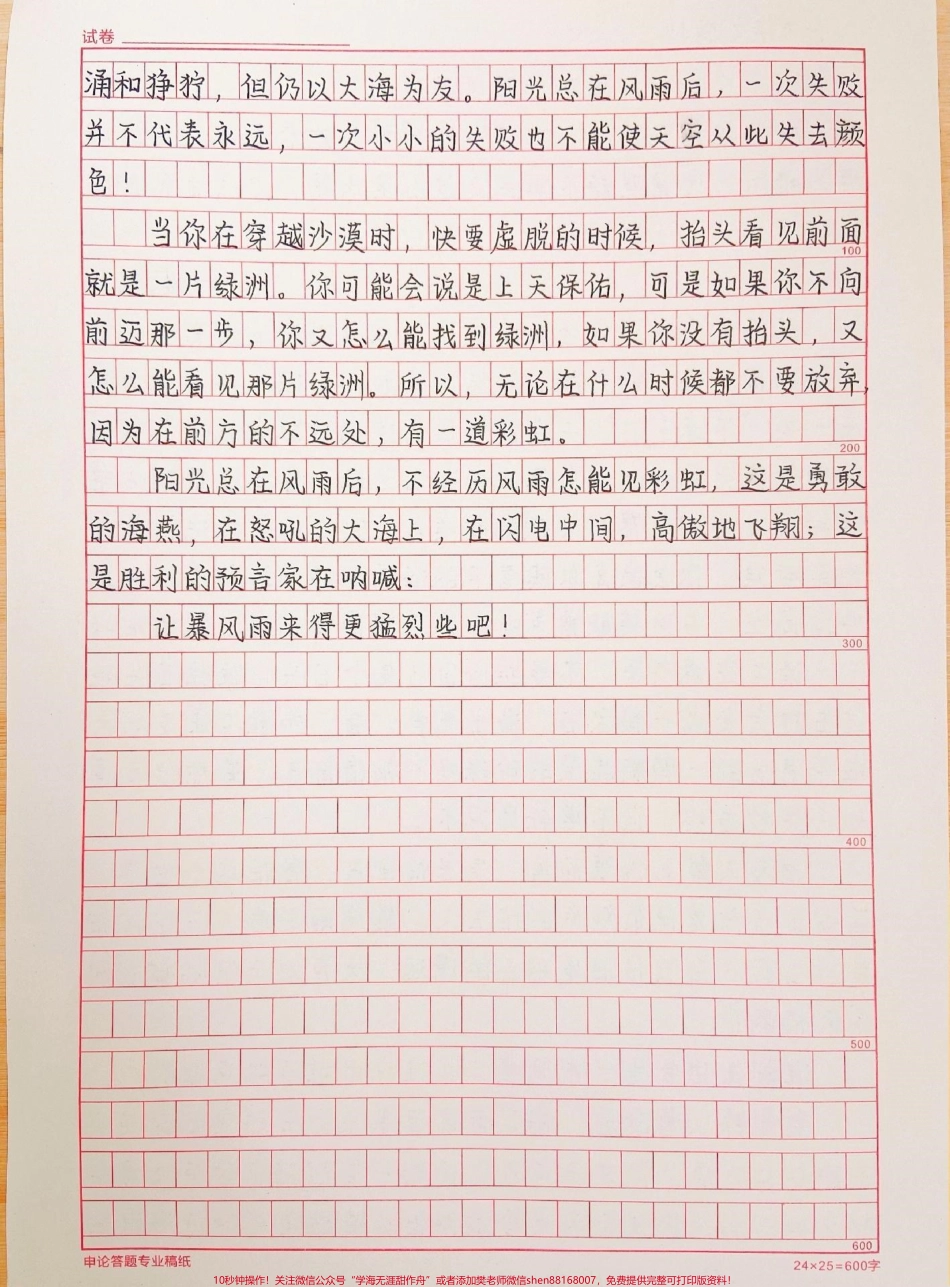 试卷
涌和狰狞，但仍以大海为友。阳光总在风雨后，一次失败
并不代表永远，一次小小的失败也不能使天空从此失去颜
色！
当你在穿越沙漠时，快要虚脱的时候，抬头看见前面
100
就是一片绿洲。你可能会说是上天保佑，可是如果你不向
前迈那一步，你又怎么能找到绿洲，如果你没有抬头，又
怎么能看见那片绿洲。所以，无论在什么时候都不要放弃，
因为在前方的不远处，有一道彩虹。
200
阳光总在风雨后，不经历风雨怎能见彩虹，这是勇敢
的海燕，在怒吼的大海上，在闪电中间，高傲地飞翔；这
是胜利的预言家在呐喊：
让暴风雨来得更猛烈些吧！
300
400
500
600
申论答题专业稿纸
24×25=600字
10秒钟操作！关注微信公众号“学海无涯甜作舟”或者添加樊老师微信shen88168007，免费提供完整可打印版资料！